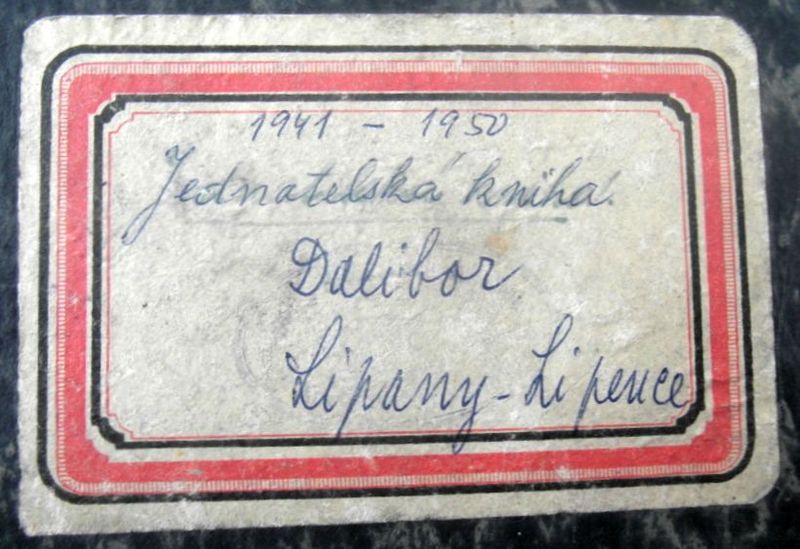 1941 - 1950
Jednatelská kniha.
Dalibor
Lipany-Lipence